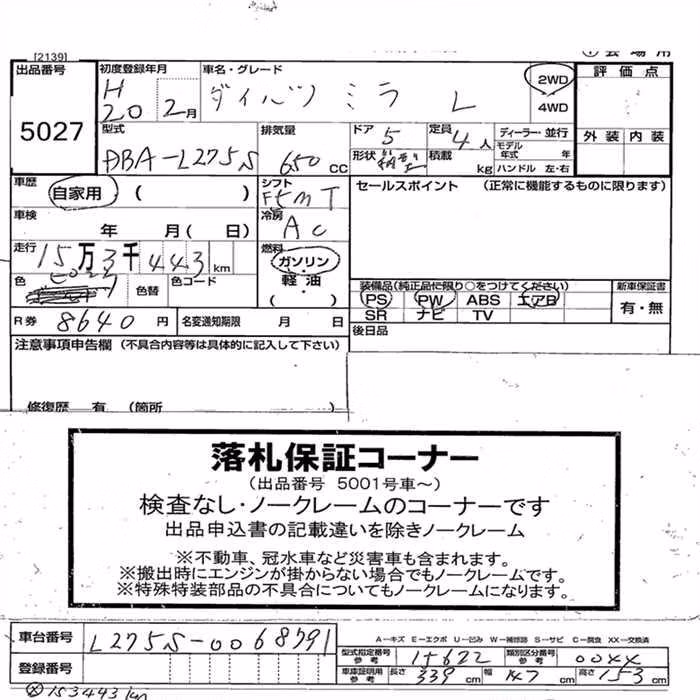 [2139]
出品番号
5027
初度登録年月
H
20 2月
車名・グレード
ダイハツ ミラ L
2WD
4WD
評価点
外装 内装
型式
DBA-L275S
排気量
650 CC
ドア
5
定員
4人
形状
箱型
積載
kg
ディーラー・並行
モデル
年式 年
ハンドル 左・右
車歴
自家用 ( )
シフト
F5MT
セールスポイント (正常に機能するものに限ります)
車検
年 月( 日)
冷房
AC
走行
15万3千443km
燃料
ガソリン
軽油
( )
色
色替
色コード
装備品(純正品に限り○をつけてください)
PS PW ABS エアB
SR ナビ TV
新車保証書
有・無
R券 8640円
名変通知期限 月 日
後日品
注意事項申告欄 (不具合内容等は具体的に記入して下さい)
修復歴 有 (箇所 )
落札保証コーナー
(出品番号 5001号車～)
検査なし・ノークレームのコーナーです
出品申込書の記載違いを除きノークレーム
※不動車、冠水車など災害車も含まれます。
※搬出時にエンジンが掛からない場合でもノークレームです。
※特殊特装部品の不具合についてもノークレームになります。
車台番号
L275S-0068791
A-キズ E-エクボ U-凹み W-補修跡 S-サビ C-腐食 XX-交換済
登録番号
型式指定番号
参考
15622
類別区分番号
参考
00XX
車庫証明用
参考
長さ 339cm 幅 147cm 高さ 153cm
153443km